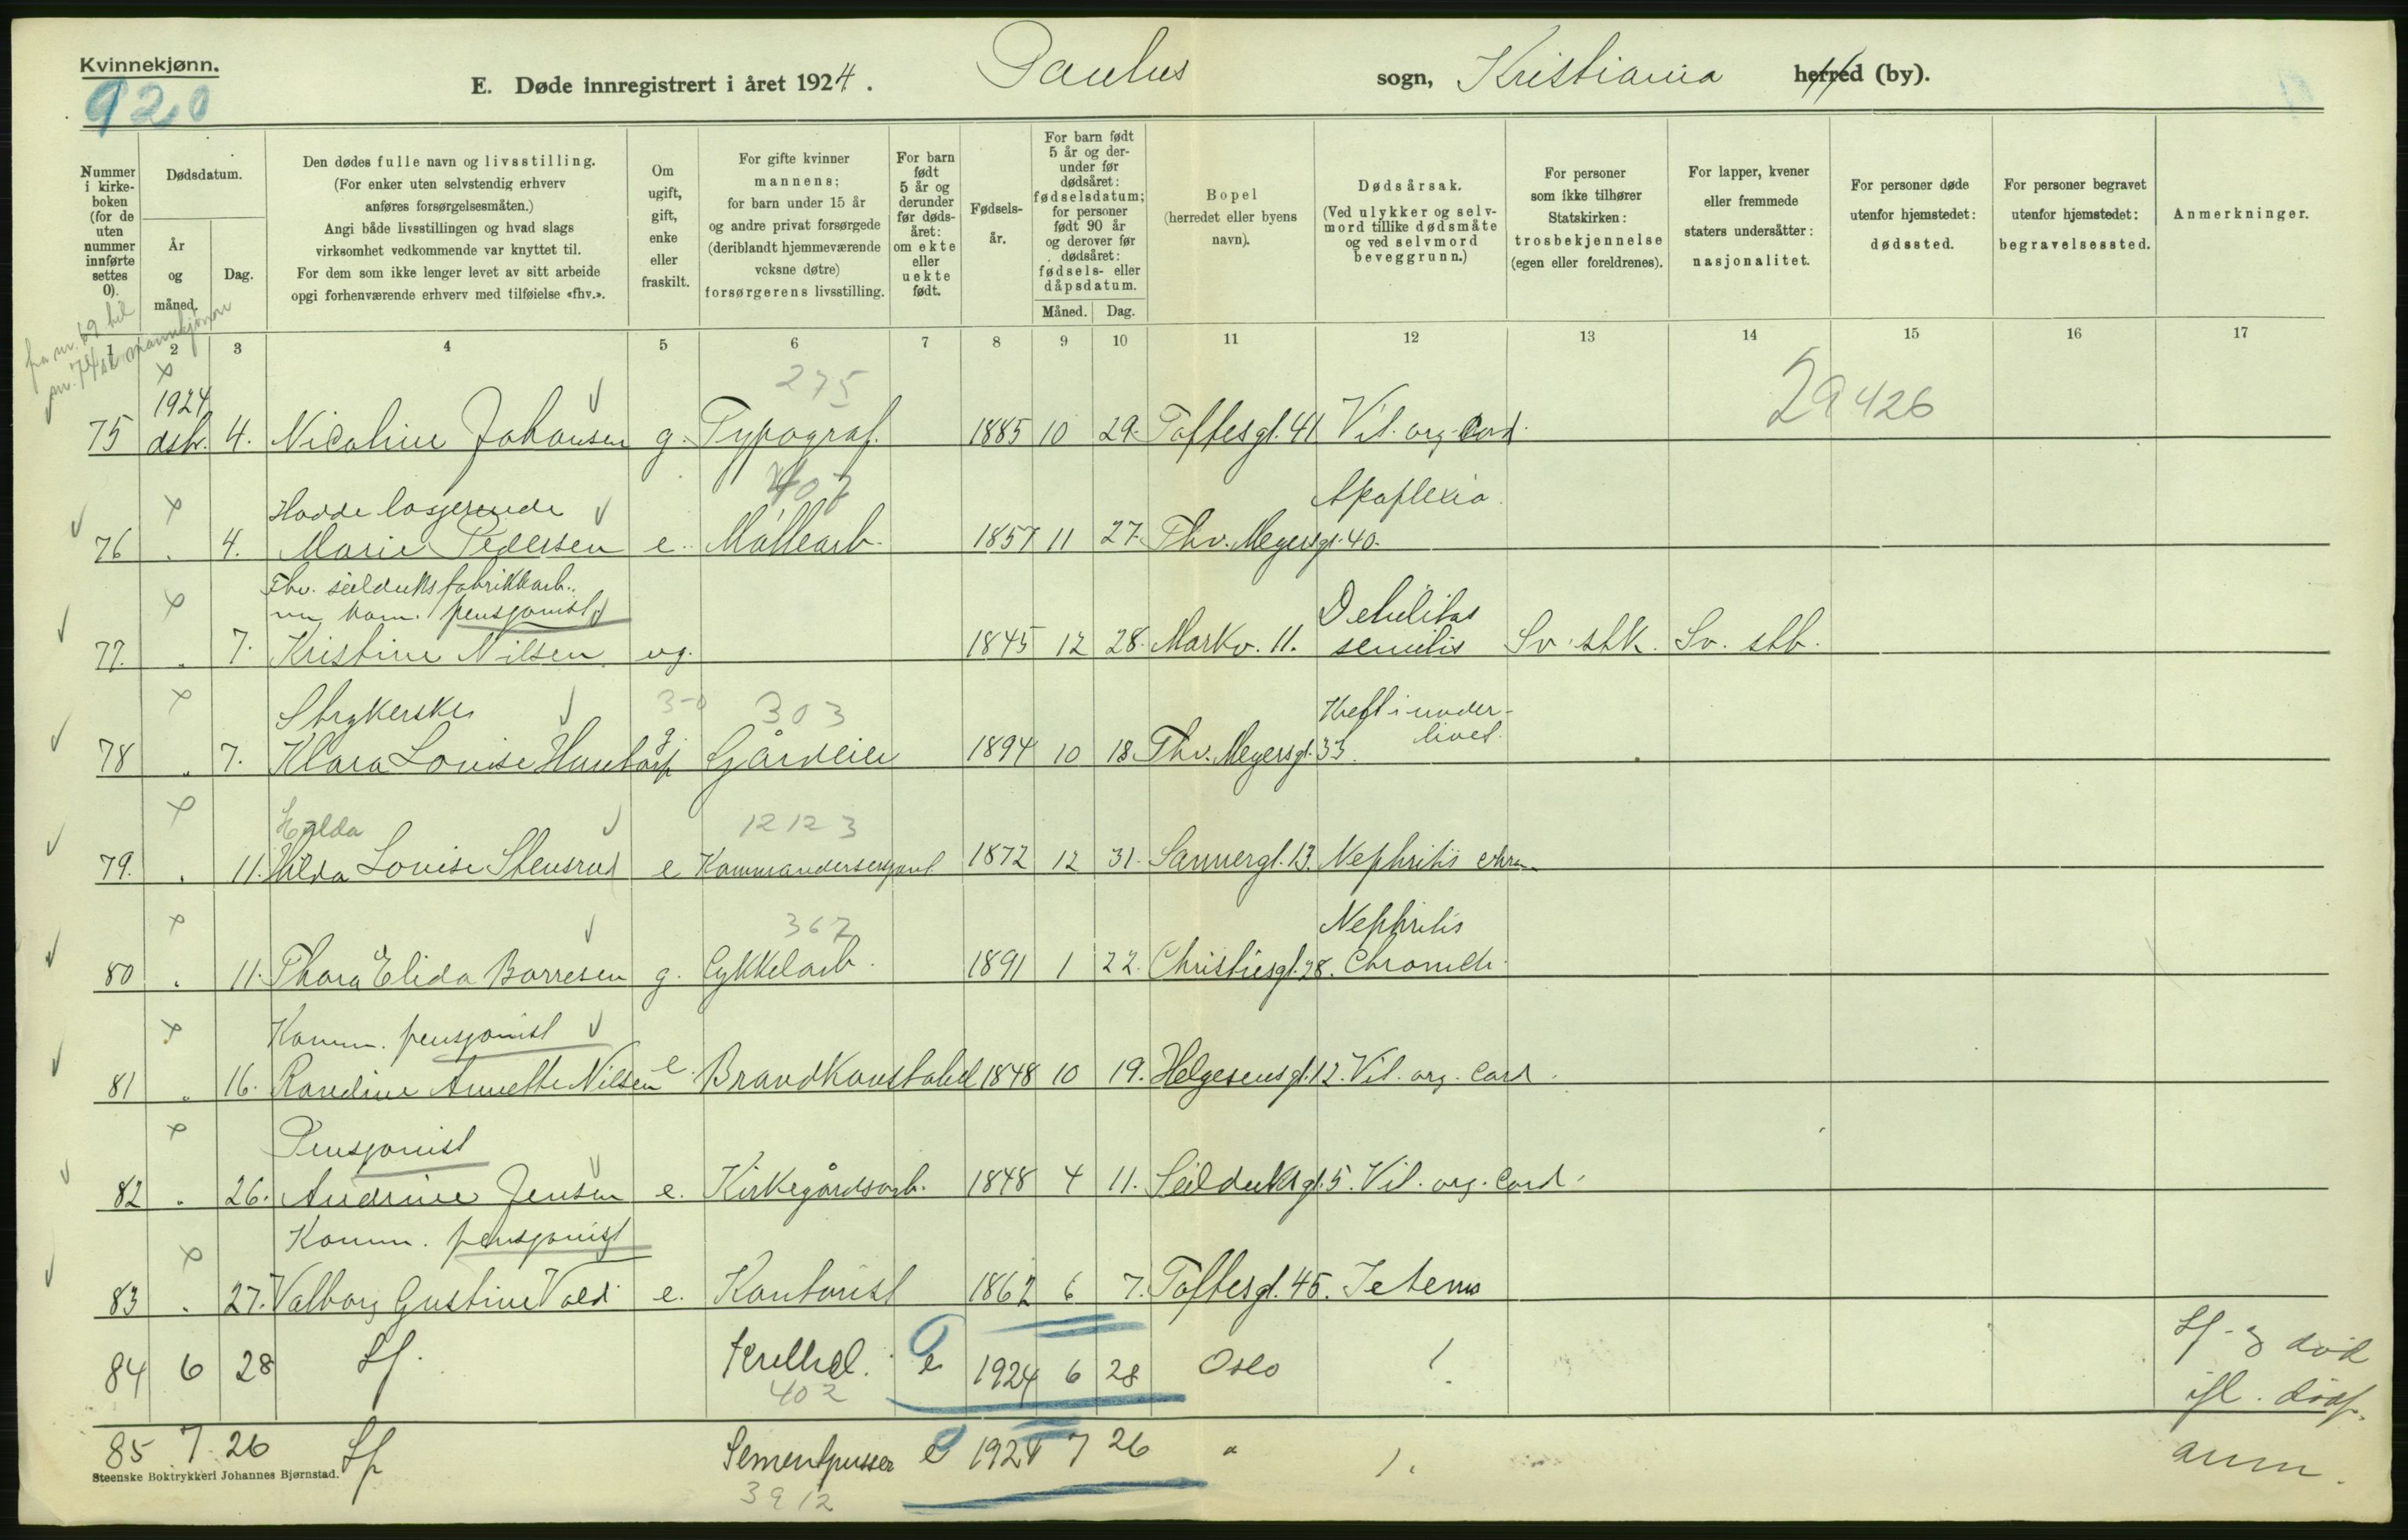 Kvinnekjønn.
920
E. Døde innregistrert i året 1924. Paulus sogn, Kristiania herred (by).
Nummer i kirkeboken (for de uten nummer innførte settes 0).
Dødsdatum.
År og måned.
Dag.
Den dødes fulle navn og livsstilling.
(For enker uten selvstendig erhverv anføres forsørgelsesmåten.)
Angi både livsstillingen og hvad slags virksomhet vedkommende var knyttet til.
For dem som ikke lenger levet av sitt arbeide opgi forhenværende erhverv med tilføielse «fhv.».
Om ugift, gift, enke eller fraskilt.
For gifte kvinner mannens; for barn under 15 år og andre privat forsørgede (deriblandt hjemmeværende voksne døtre) forsørgerens livsstilling.
For barn født 5 år og derunder før dødsåret: om ekte eller uekte født.
Fødselsår.
For barn født 5 år og derunder før dødsåret: fødselsdatum; for personer født 90 år og derover før dødsåret: fødsels- eller dåpsdatum.
Måned. Dag.
Bopel (herredet eller byens navn).
Dødsårsak. (Ved ulykker og selvmord tillike dødsmåte og ved selvmord beveggrunn.)
For personer som ikke tilhører Statskirken: trosbekjennelse (egen eller foreldrenes).
For lapper, kvener eller fremmede staters undersåtter: nasjonalitet.
For personer døde utenfor hjemstedet: dødssted.
For personer begravet utenfor hjemstedet: begravelsessted.
Anmerkninger.
fra nr. 69 til
nr. 74 er mannkjønn
1 2 3 4 5 6 7 8 9 10 11 12 13 14 15 16 17
x 275 29426
1924
75 dsbr. 4. Nicoline Johansen g. Typograf. 1885 10 29. Toftesgt. 41 Vit. org. Cord.
x Hadde losjerende 407 Apoplexia.
76 . 4. Marie Pedersen e. Møllearb. 1857 11 27. Thv. Meyersgt. 40.
Fhv. seilduksfabrikkarb.
x nu kom. pensjonist Debilitas
77. . 7. Kristine Nilsen ug. 1845 12 28. Markv. 11. senilis Sv. stk. Sv. stb.
x Strykerske 3-0 303 Kreft i under-
livet.
78 . 7. Klara Louise g. Gårdeier 1894 10 18. Thv. Meyersgt. 33.
x Hilda 12123
79. . 11. Hilda Louise Stensrud e Kommandersersjant 1872 12 31. Sannergt. 13. Nephritis chron.
x 367 Nephritis
80 . 11. Thora Elida Borresen g. Cykkelarb. 1891 1 22. Christiesgt. 28. Chronich.
x Komm. pensjonist
81 . 16. Randine Annette Nilsen e. Brandkonstabel 1848 10 19. Helgesensgt. 12. Vit. org. Cord.
x Pensjonist
82 . 26. Andrine Jensen e. Kirkegårdsarb. 1848 4 11. Seilduksgt. 5. Vit. org. Cord.
x Komm. pensjonist
83 . 27. Valborg Gustine Vold e. Kontorist 1862 6 7. Toftesgt. 45. Icterus
84 6 28 Sf. e 1924 6 28 Oslo 1. Sf. og død
402 ifl. dødf.
85 7 26 Sf Sementpusser e 1924 7 26 " 1. anm.
3912
Steenske Boktrykkeri Johannes Bjørnstad.